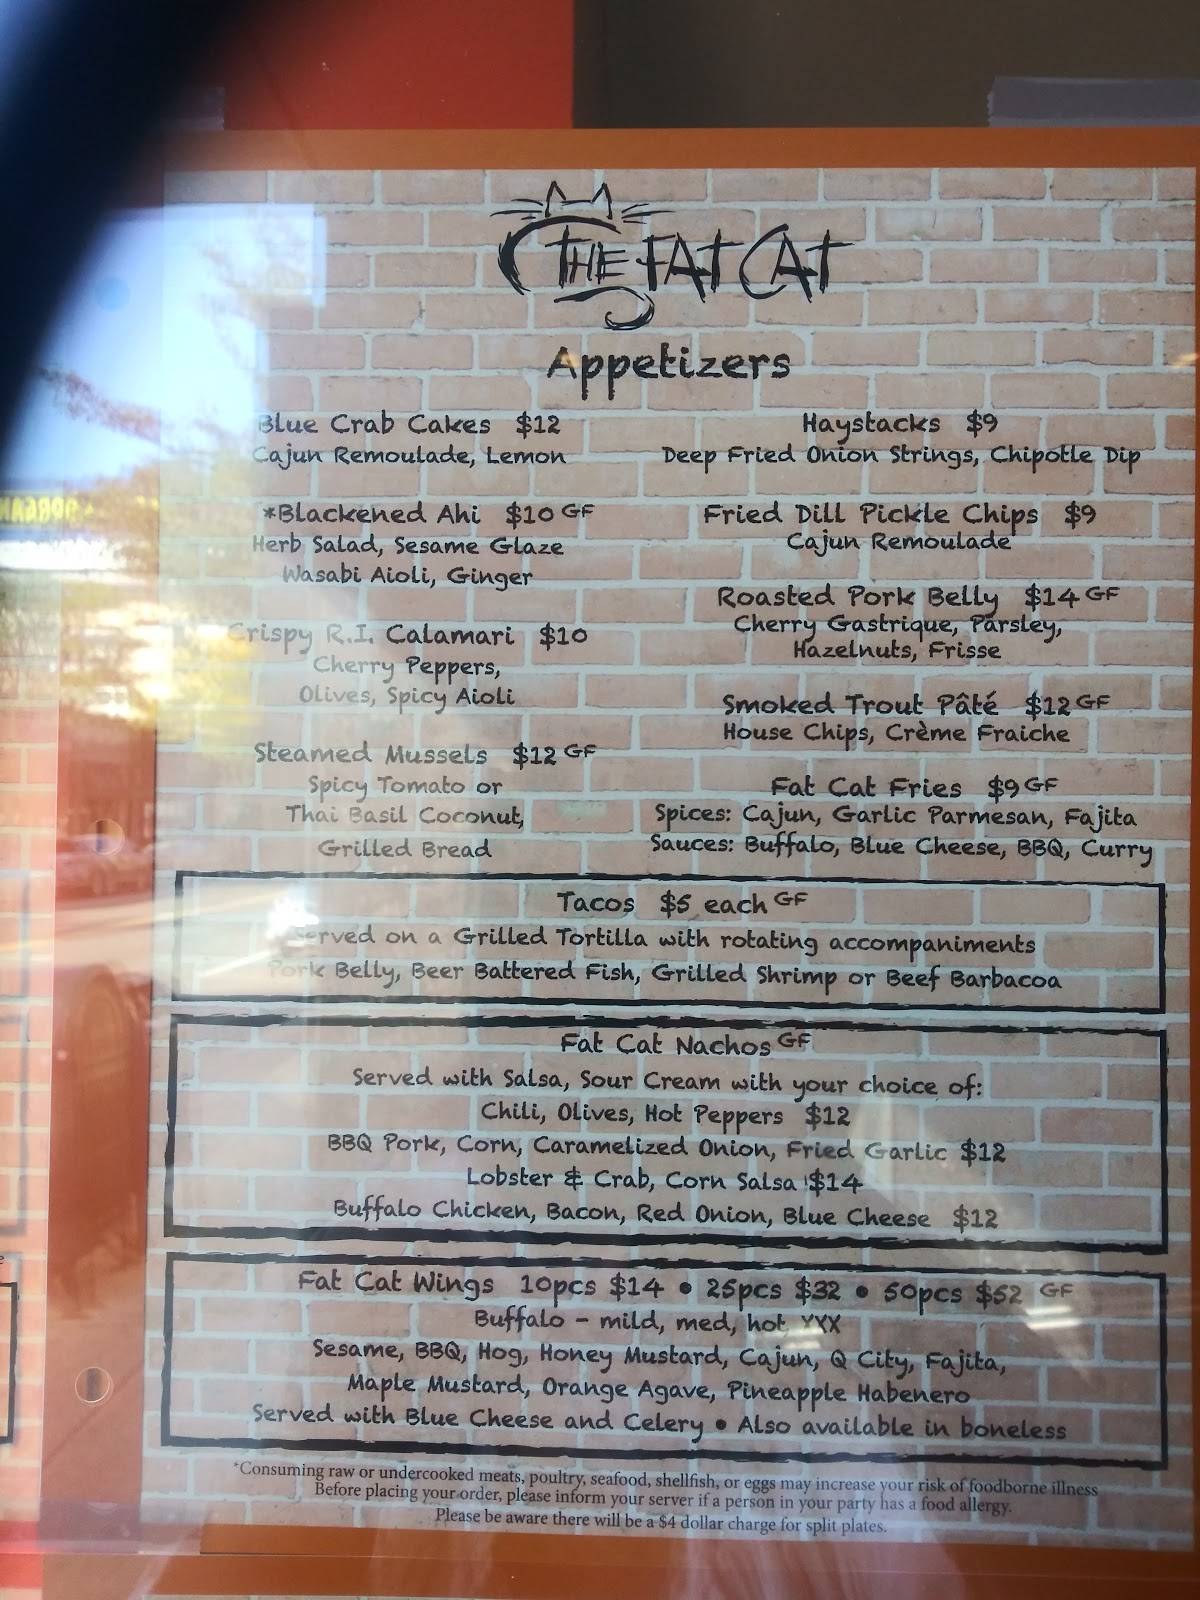 THE FAT CAT
Appetizers
Blue Crab Cakes $12
Cajun Remoulade, Lemon
*Blackened Ahi $10 GF
Herb Salad, Sesame Glaze
Wasabi Aioli, Ginger
Crispy R.I. Calamari $10
Cherry Peppers,
Olives, Spicy Aioli
Steamed Mussels $12 GF
Spicy Tomato or
Thai Basil Coconut,
Grilled Bread
Haystacks $9
Deep Fried Onion Strings, Chipotle Dip
Fried Dill Pickle Chips $9
Cajun Remoulade
Roasted Pork Belly $14 GF
Cherry Gastrique, Parsley,
Hazelnuts, Frisse
Smoked Trout Pâté $12 GF
House Chips, Crème Fraiche
Fat Cat Fries $9 GF
Spices: Cajun, Garlic Parmesan, Fajita
Sauces: Buffalo, Blue Cheese, BBQ, Curry
Tacos $5 each GF
Served on a Grilled Tortilla with rotating accompaniments
Pork Belly, Beer Battered Fish, Grilled Shrimp or Beef Barbacoa
Fat Cat Nachos GF
Served with Salsa, Sour Cream with your choice of:
Chili, Olives, Hot Peppers $12
BBQ Pork, Corn, Caramelized Onion, Fried Garlic $12
Lobster & Crab, Corn Salsa $14
Buffalo Chicken, Bacon, Red Onion, Blue Cheese $12
Fat Cat Wings 10pcs $14 • 25pcs $32 • 50pcs $52 GF
Buffalo - mild, med, hot, XXX
Sesame, BBQ, Hog, Honey Mustard, Cajun, Q City, Fajita,
Maple Mustard, Orange Agave, Pineapple Habenero
Served with Blue Cheese and Celery • Also available in boneless
*Consuming raw or undercooked meats, poultry, seafood, shellfish, or eggs may increase your risk of foodborne illness
Before placing your order, please inform your server if a person in your party has a food allergy.
Please be aware there will be a $4 dollar charge for split plates.